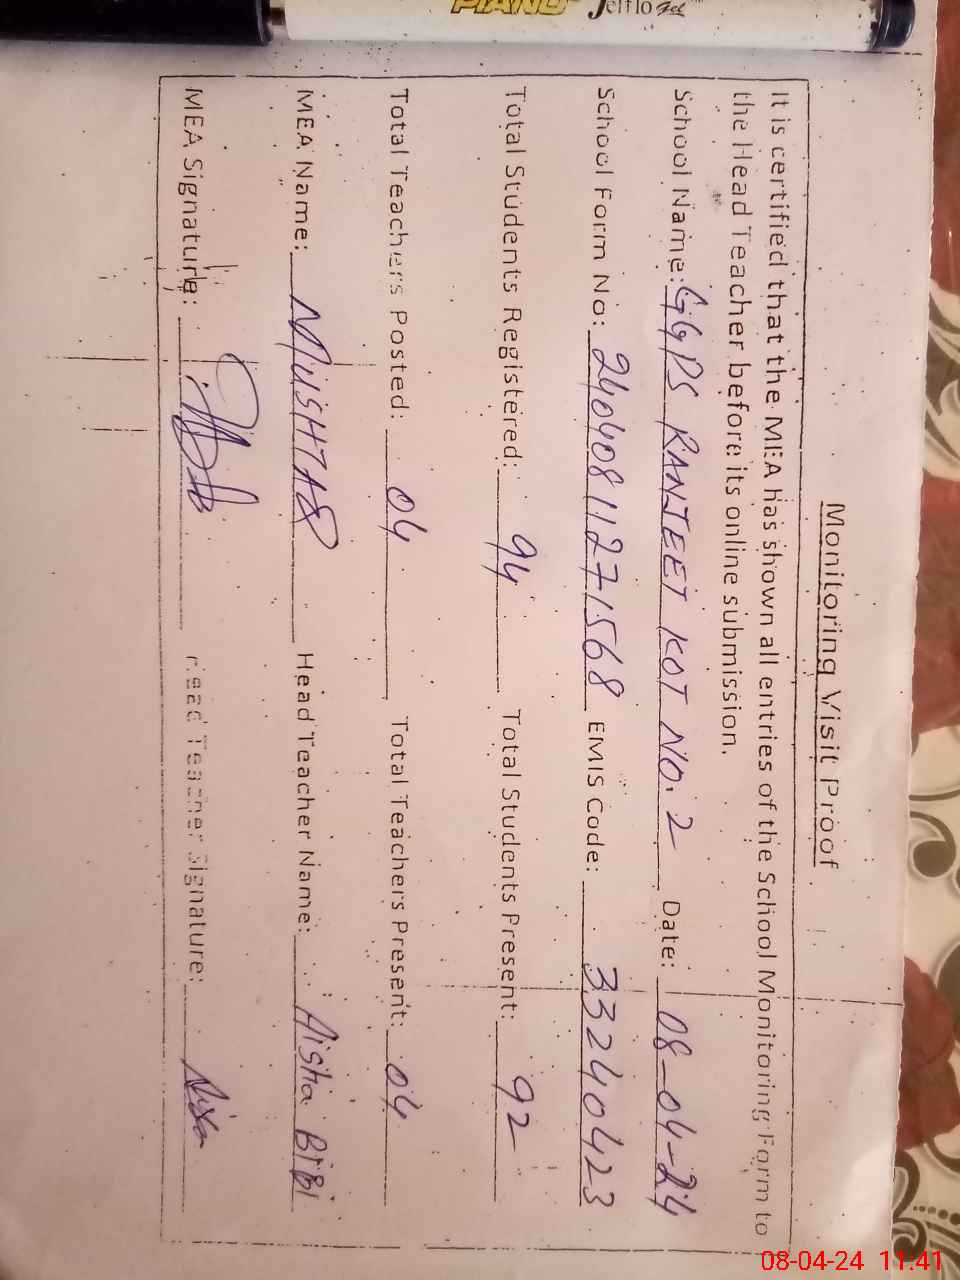 PIANO Jelflo gel
Monitoring Visit Proof
It is certified that the MEA has shown all entries of the School Monitoring Form to
the Head Teacher before its online submission.
School Name: GGPS RANJEET KOT NO. 2 Date: 08-04-24
School Form No: 24040811271568 EMIS Code: 33240423
Total Students Registered: 94 Total Students Present: 92
Total Teachers Posted: 04 Total Teachers Present: 04
MEA Name: MUSHTAQ Head Teacher Name: Aisha BiBi
MEA Signature: Head Teacher Signature:
08-04-24 11:41